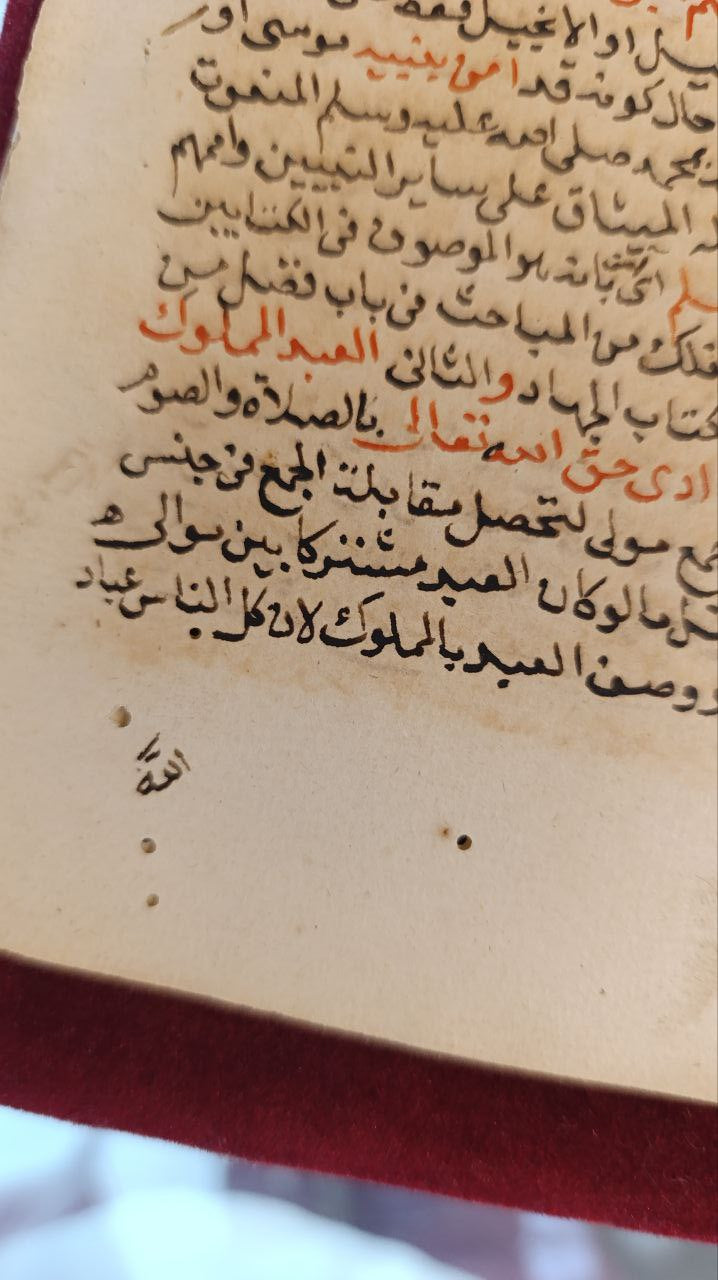 او الانجيل فقط
حال كونه قد امن بنبيه موسى او
بمحمد صلى الله عليه وسلم المنعوت
الميثاق على ساير النبيين واممهم
اى بانه هو الموصوف فى الكتابين
ذلك من المباحث فى باب فضل من
كتاب الجهاد والثانى العبد المملوك
ادى حق الله تعالى بالصلاة والصوم
جمع مولى لتحصل مقابلة الجمع فى جنس
مالو كان العبد مشتركا بين موالى
ووصف العبد بالمملوك لان كل الناس عباد
الله